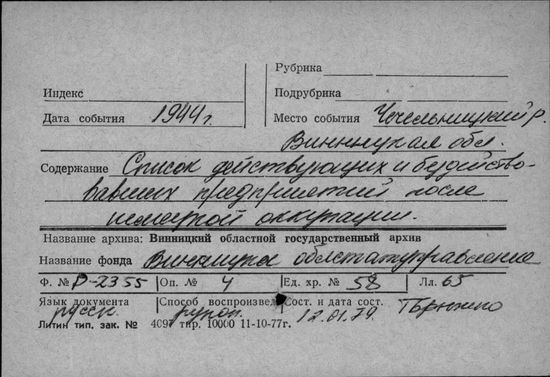 Рубрика
Индекс Подрубрика
Дата события 1944 г. Место события Чечельницкий р.
Винницкая обл.
Содержание Список действующих и бездейство-
вавших предприятий после
немецкой оккупации.
Название архива: Винницкий областной государственный архив
Название фонда Винницкое облстатуправление
Ф. № Р-2355 Оп. № 4 Ед. хр. № 58 Лл. 65
Язык документа Способ воспроизвед Сост. и дата сост.
русск. рукоп. 12.01.79
Литин тип. зак. № 4097 тир. 10000 11-10-77г.